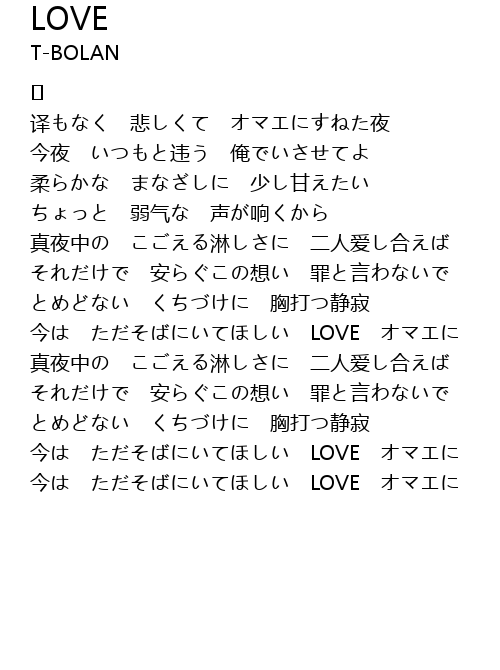 LOVE
T-BOLAN
译もなく　悲しくて　オマエにすねた夜
今夜　いつもと违う　俺でいさせてよ
柔らかな　まなざしに　少し甘えたい
ちょっと　弱气な　声が响くから
真夜中の　こごえる淋しさに　二人爱し合えば
それだけで　安らぐこの想い　罪と言わないで
とめどない　くちづけに　胸打つ静寂
今は　ただそばにいてほしい　LOVE　オマエに
真夜中の　こごえる淋しさに　二人爱し合えば
それだけで　安らぐこの想い　罪と言わないで
とめどない　くちづけに　胸打つ静寂
今は　ただそばにいてほしい　LOVE　オマエに
今は　ただそばにいてほしい　LOVE　オマエに